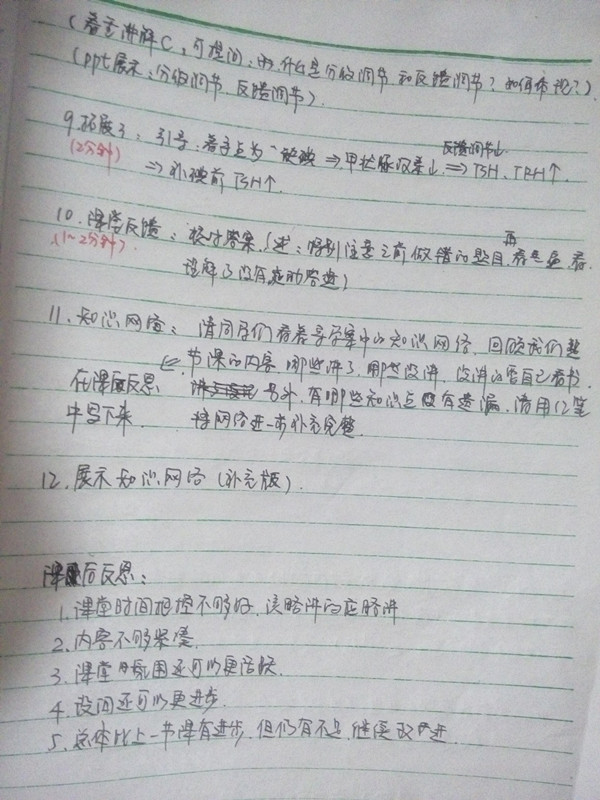 (看书讲解C,可提问:为什么是分级调节和反馈调节?如何体现?)
(ppt展示:分级调节、反馈调节).
9.拓展3:引导:看书上为"缺碘⇒甲状腺激素↓⇒TSH、TRH↑.
反馈调节↓
(2分钟)
⇒补碘前TSH↑.
10.课堂反馈:核对答案.(述:特别注意之前做错的题目,再看是底看
(1~2分钟)
理解了没有
11.知识网络:请同学们看着导学案中的知识网络,回顾我们整
节课的内容,哪些讲了,哪些没讲,没讲的要自己看书.
在课后反思
另外,有哪些知识点没有遗漏,请用红笔
中写下来.
将网络进一步补充完整.
12.展示知识网络(补充版).
课后反思:
1.课堂时间把握不够好,该略讲的应略讲
2.内容不够紧凑.
3.课堂氛围还可以更活跃.
4.设问还可以更进步.
5.总体比上一节课有进步,但仍有不足,继续改进.